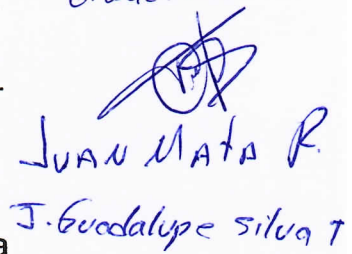 JUAN MATA R.
J. Guadalupe Silva T
a